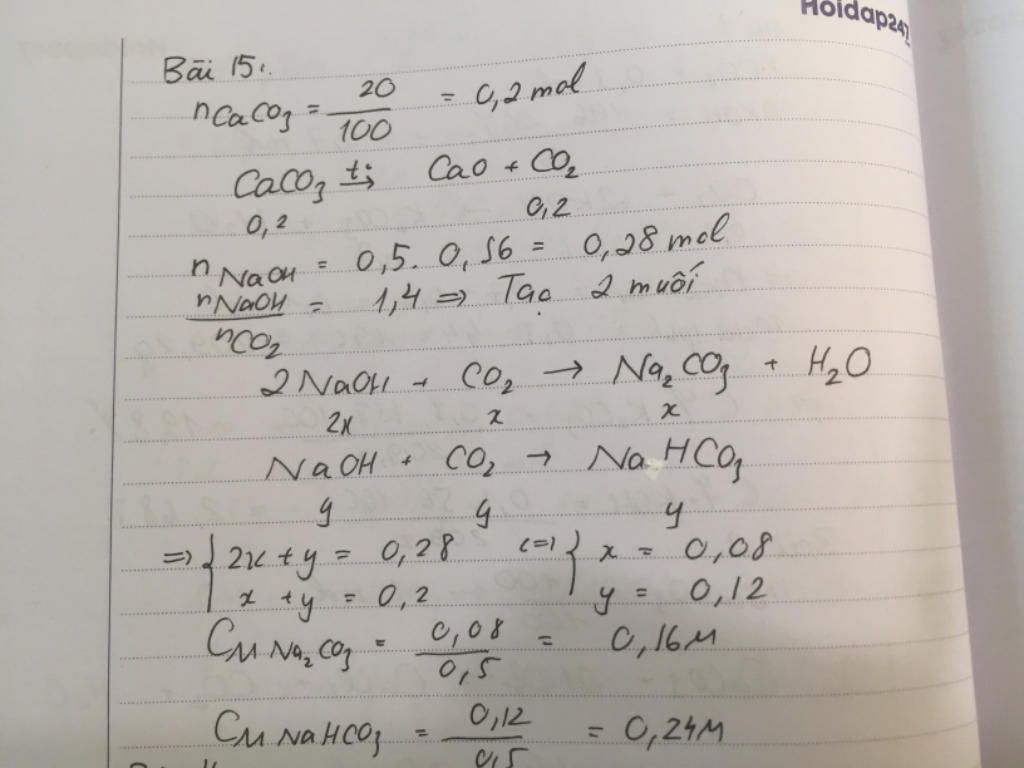 Hoidap247
Bài 15:
nCaCO3 = 20/100 = 0,2 mol
CaCO3 t° → CaO + CO2
0,2 0,2
nNaOH = 0,5. 0,56 = 0,28 mol
nNaOH/nCO2 = 1,4 => Tạo 2 muối
2NaOH + CO2 → Na2CO3 + H2O
2x x x
NaOH + CO2 → NaHCO3
y y y
=> { 2x + y = 0,28 <=> { x = 0,08
x + y = 0,2 y = 0,12
CM Na2CO3 = 0,08/0,5 = 0,16M
CM NaHCO3 = 0,12/0,5 = 0,24M